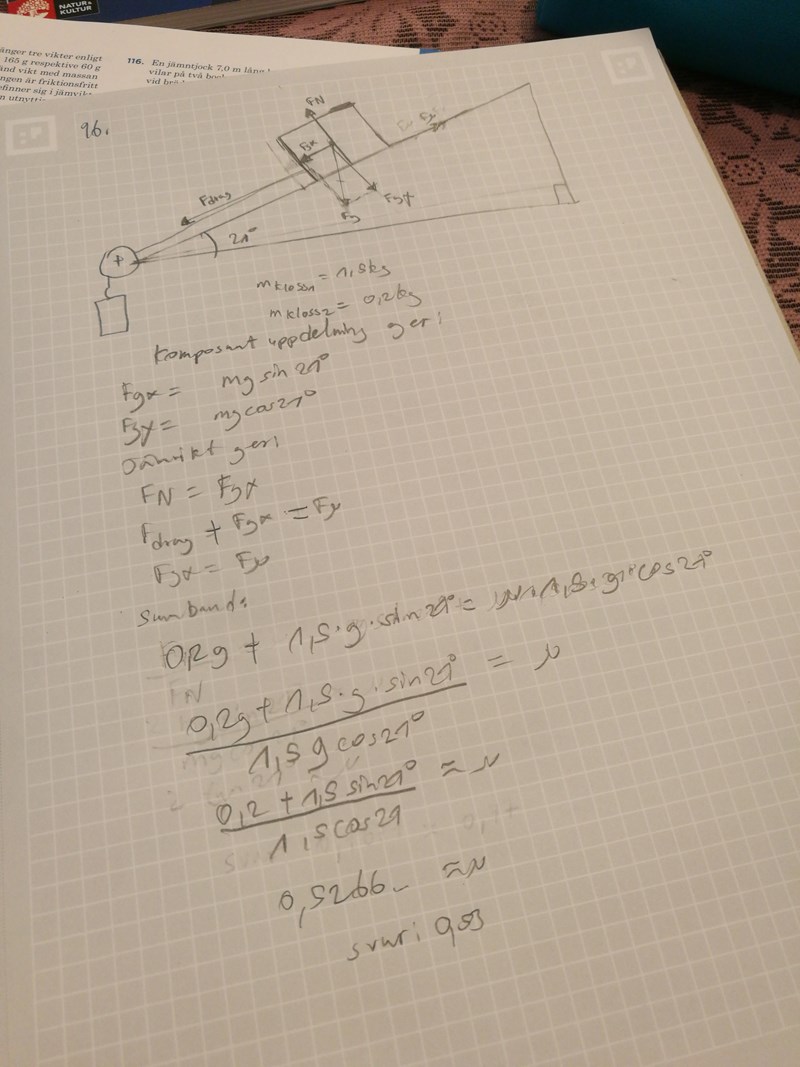 NATUR &
KULTUR
änger tre vikter enligt
165 g respektive 60 g
änd vikt med massan
ngen är friktionsfritt
efinner sig i jämvik
n utnytti
116. En jämntjock 7,0 m lång
vilar på två
vid
96.
FN
Fgx
Fdrag
Fgy
Fg
21°
m kloss1 = 1,5kg
m kloss2 = 0,2kg
Komposant uppdelning ger:
Fgx = mg sin 21°
Fgy = mg cos 21°
Jämvikt ger:
FN = Fgy
Fdrag + Fgx = Fμ
Fgx = Fμ
Sumband:
0,2g + 1,5·g·sin 21° = 1,5·g·cos 21°
0,2g + 1,5·g·sin 21° = μ
1,5 g cos 21°
0,2 + 1,5 sin 21° ≈ μ
1,5 cos 21
0,5266.. ≈ μ
svar: 0,53